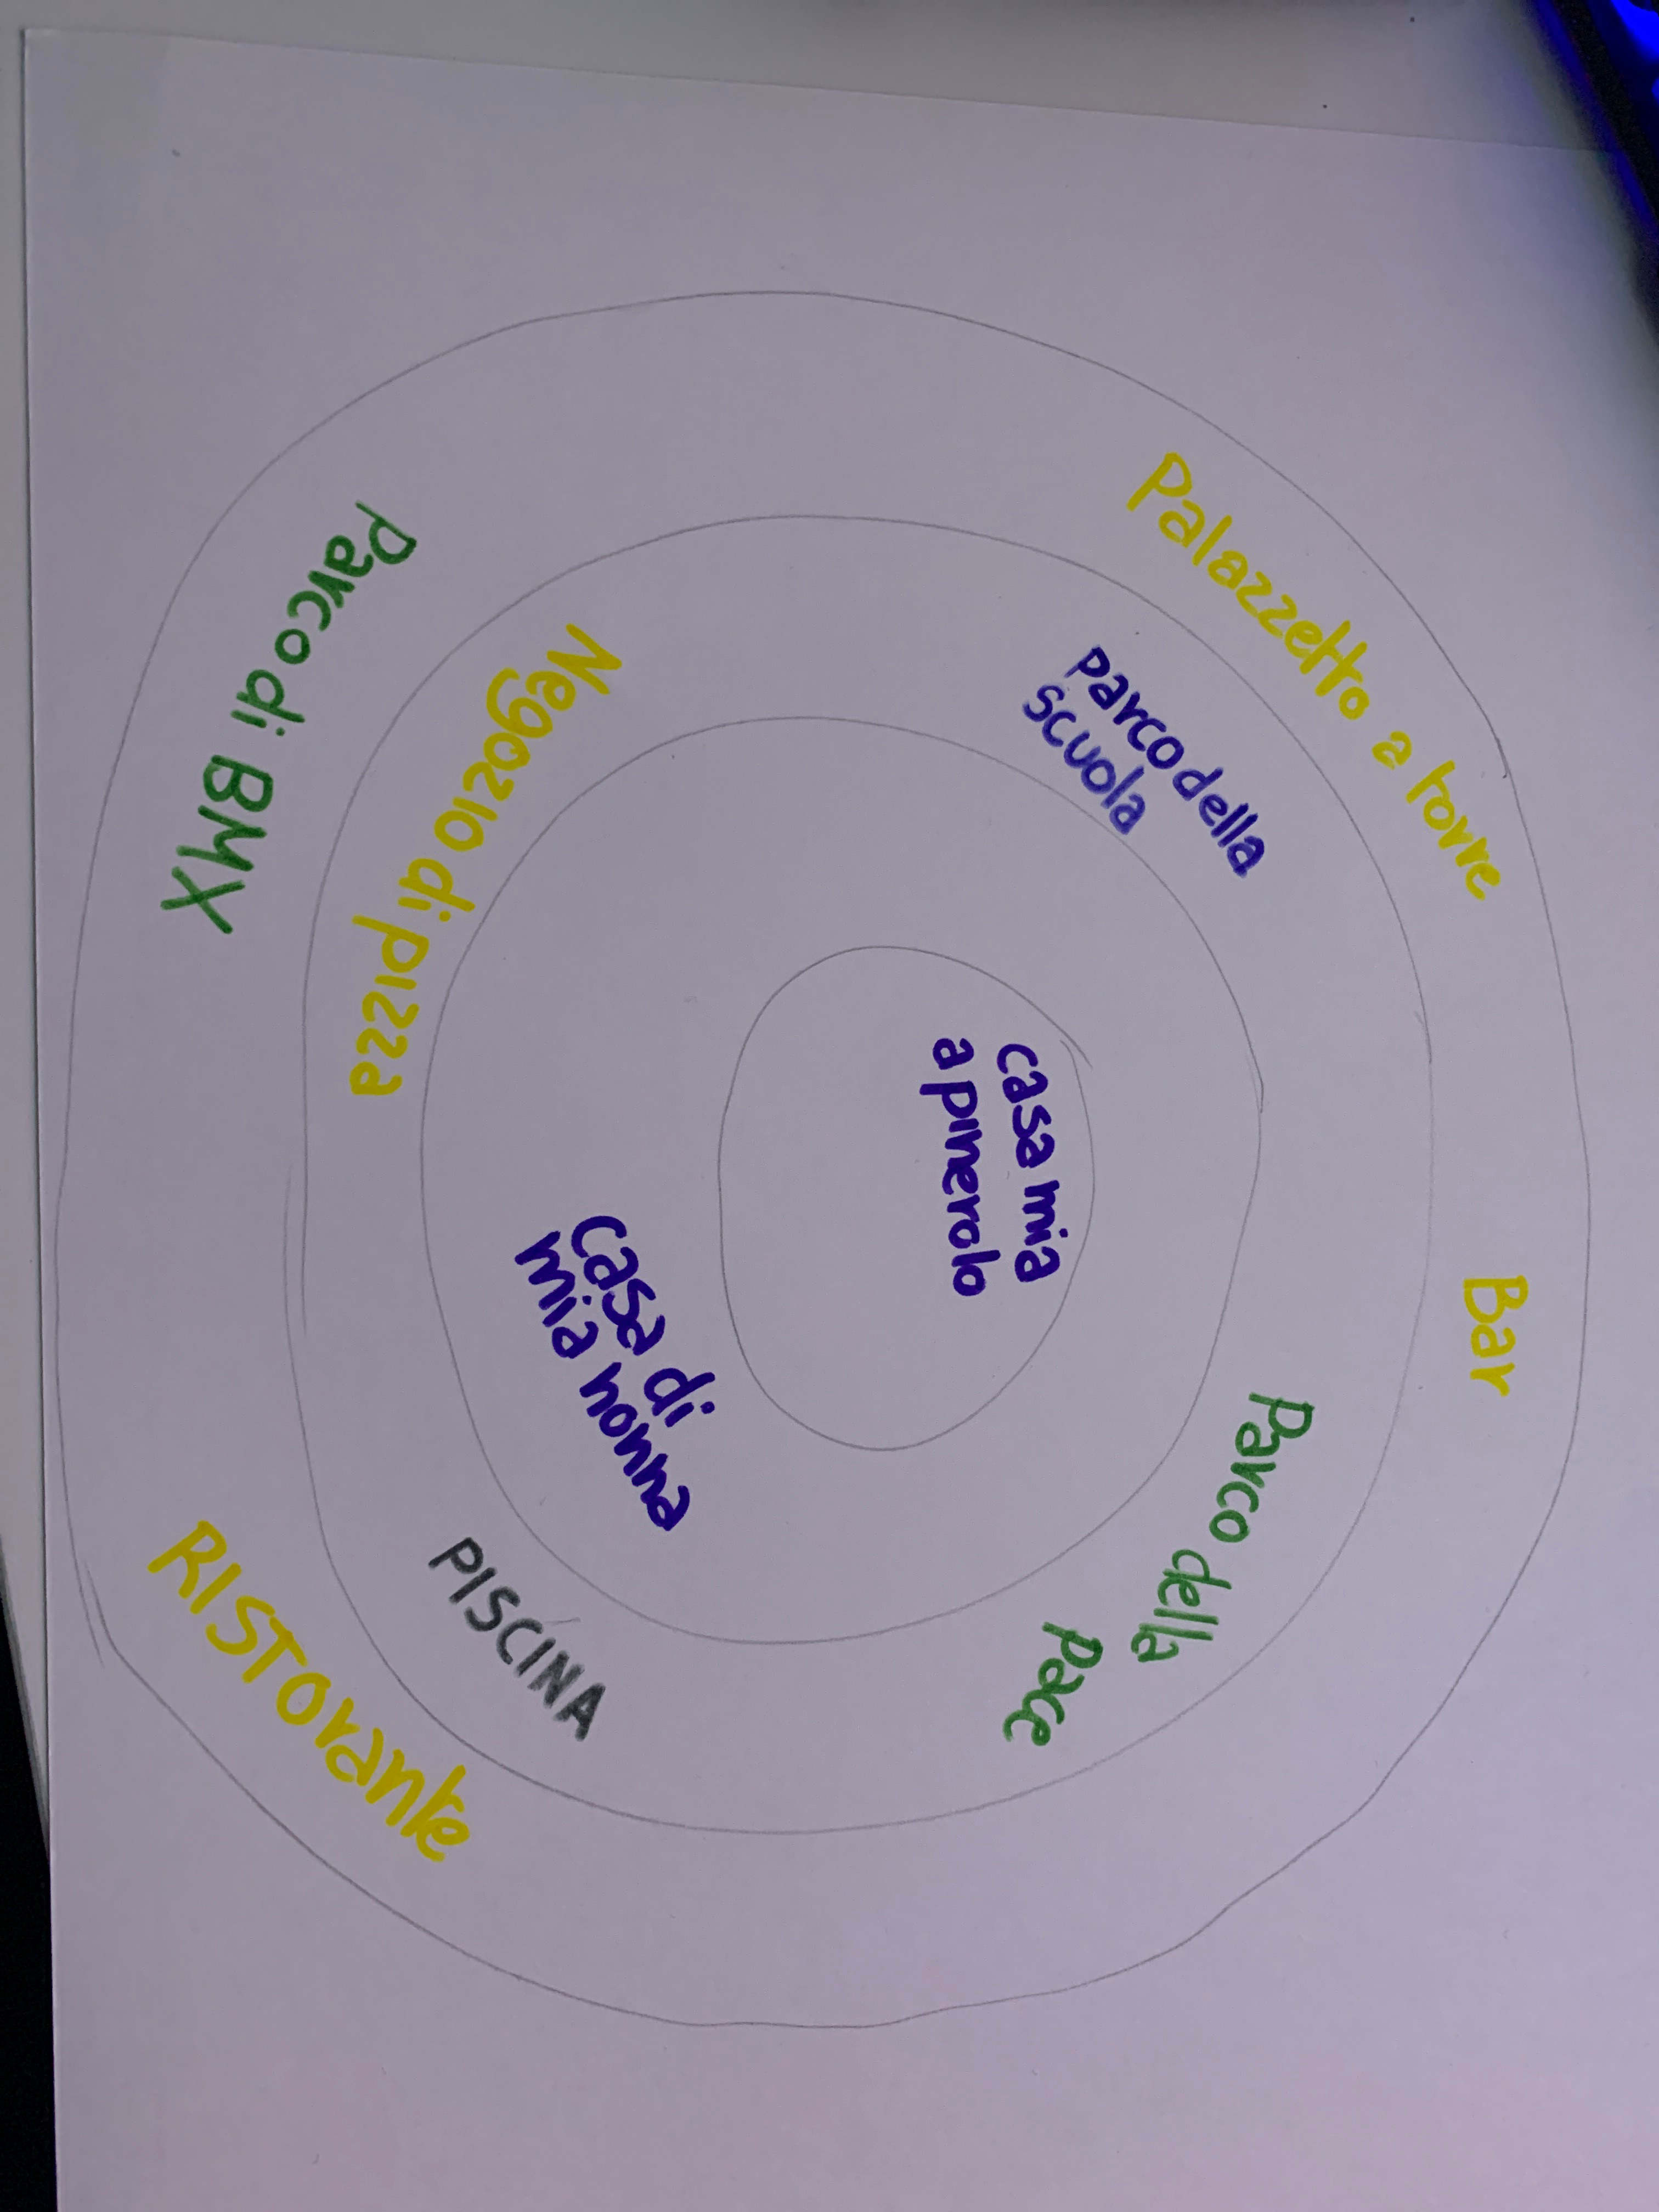 Palazzetto a torre
Bar
parco della
scuola
Parco della
Pace
casa mia
a pinerolo
casa di
mia nonna
Negozio di pizza
PISCINA
Parco di BMX
RISTOrante